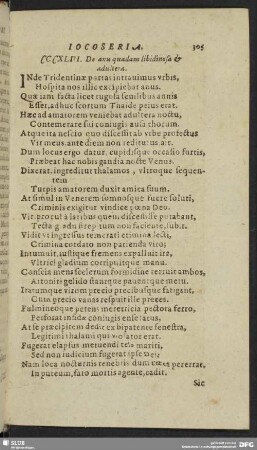 IOCOSERIA. 305
CCCXLVI. De anu quadam libidinosa &
adultera.
INde Tridentinæ portas intrauimus vrbis,
Hospita nos illic excipiebat anus.
Quæ iam facta licet rugosa senilibus annis
Esset, adhuc scortum Thaide peius erat.
Hæc ad amatorem veniebat adultera noctu,
Contemerare sui coniugis ausa thorum.
Atque ita nescio quo discessit ab vrbe profectus
Vir meus: ante diem non rediturus ait.
Dum locus ergo datur, cupidisque occasio furtis,
Præbeat hac nobis gaudia nocte Venus.
Dixerat, ingreditur thalamos, vltroque sequen-
tem
Turpis amatorem duxit amica suum.
At simul in Venerem somnosque fuere soluti,
Criminis exigitur vindice pœna Deo.
Vir, procul à laribus quem discessisse putabant,
Tecta gradu strepitum non faciente, subit.
Vidit vt ingressus temerati crimina lecti,
Crimina cordato non patienda viro;
Intumuit, iustique fremens expalluit ira,
Vltrici gladium corripuitque manu.
Conscia mens scelerum formidine terruit ambos,
Attoniti gelido stantque pauentque metu.
Iratumque virum precio precibusque fatigant,
Cum precio vanas respuit ille preces.
Fulmineoque petens meretricia pectora ferro,
Perforat infidæ coniugis ense latus,
At se præcipitem dedit ex bipatente fenestra,
Legitimi thalami qui violator erat.
Fugerat elapsus metuendi tela mariti,
Sed non iudicium fugerat ipse
Nam loca nocturnis tenebris dum cæca pererrat,
In puteum, fato mortis agente, cadit.
Sic
SLUB